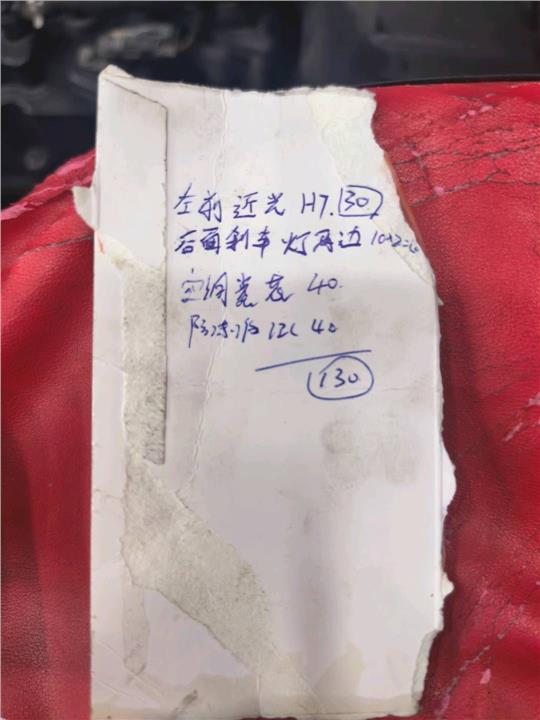 左前近光 H7. 30
后面刹车灯两边 10×2=20
空调滤芯 40.
防冻液 12L 40
130